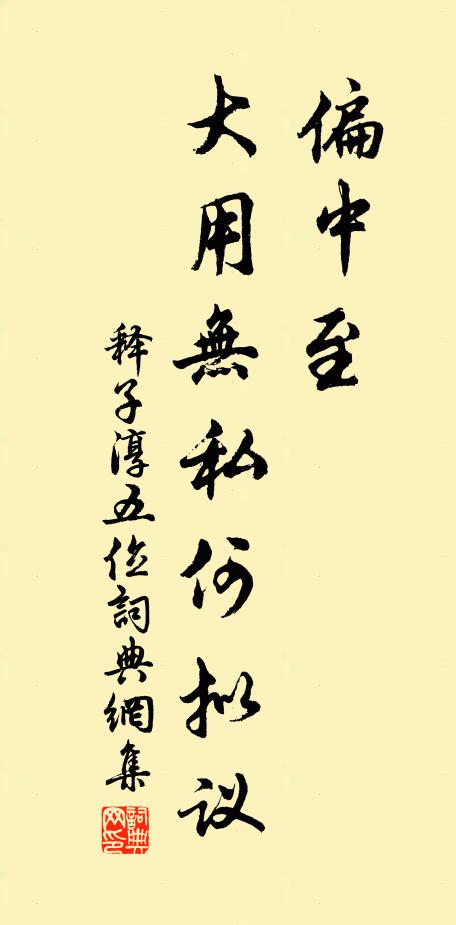 偏中至
大用無私何拟议
释子淳五位詞典網集
詞典网印